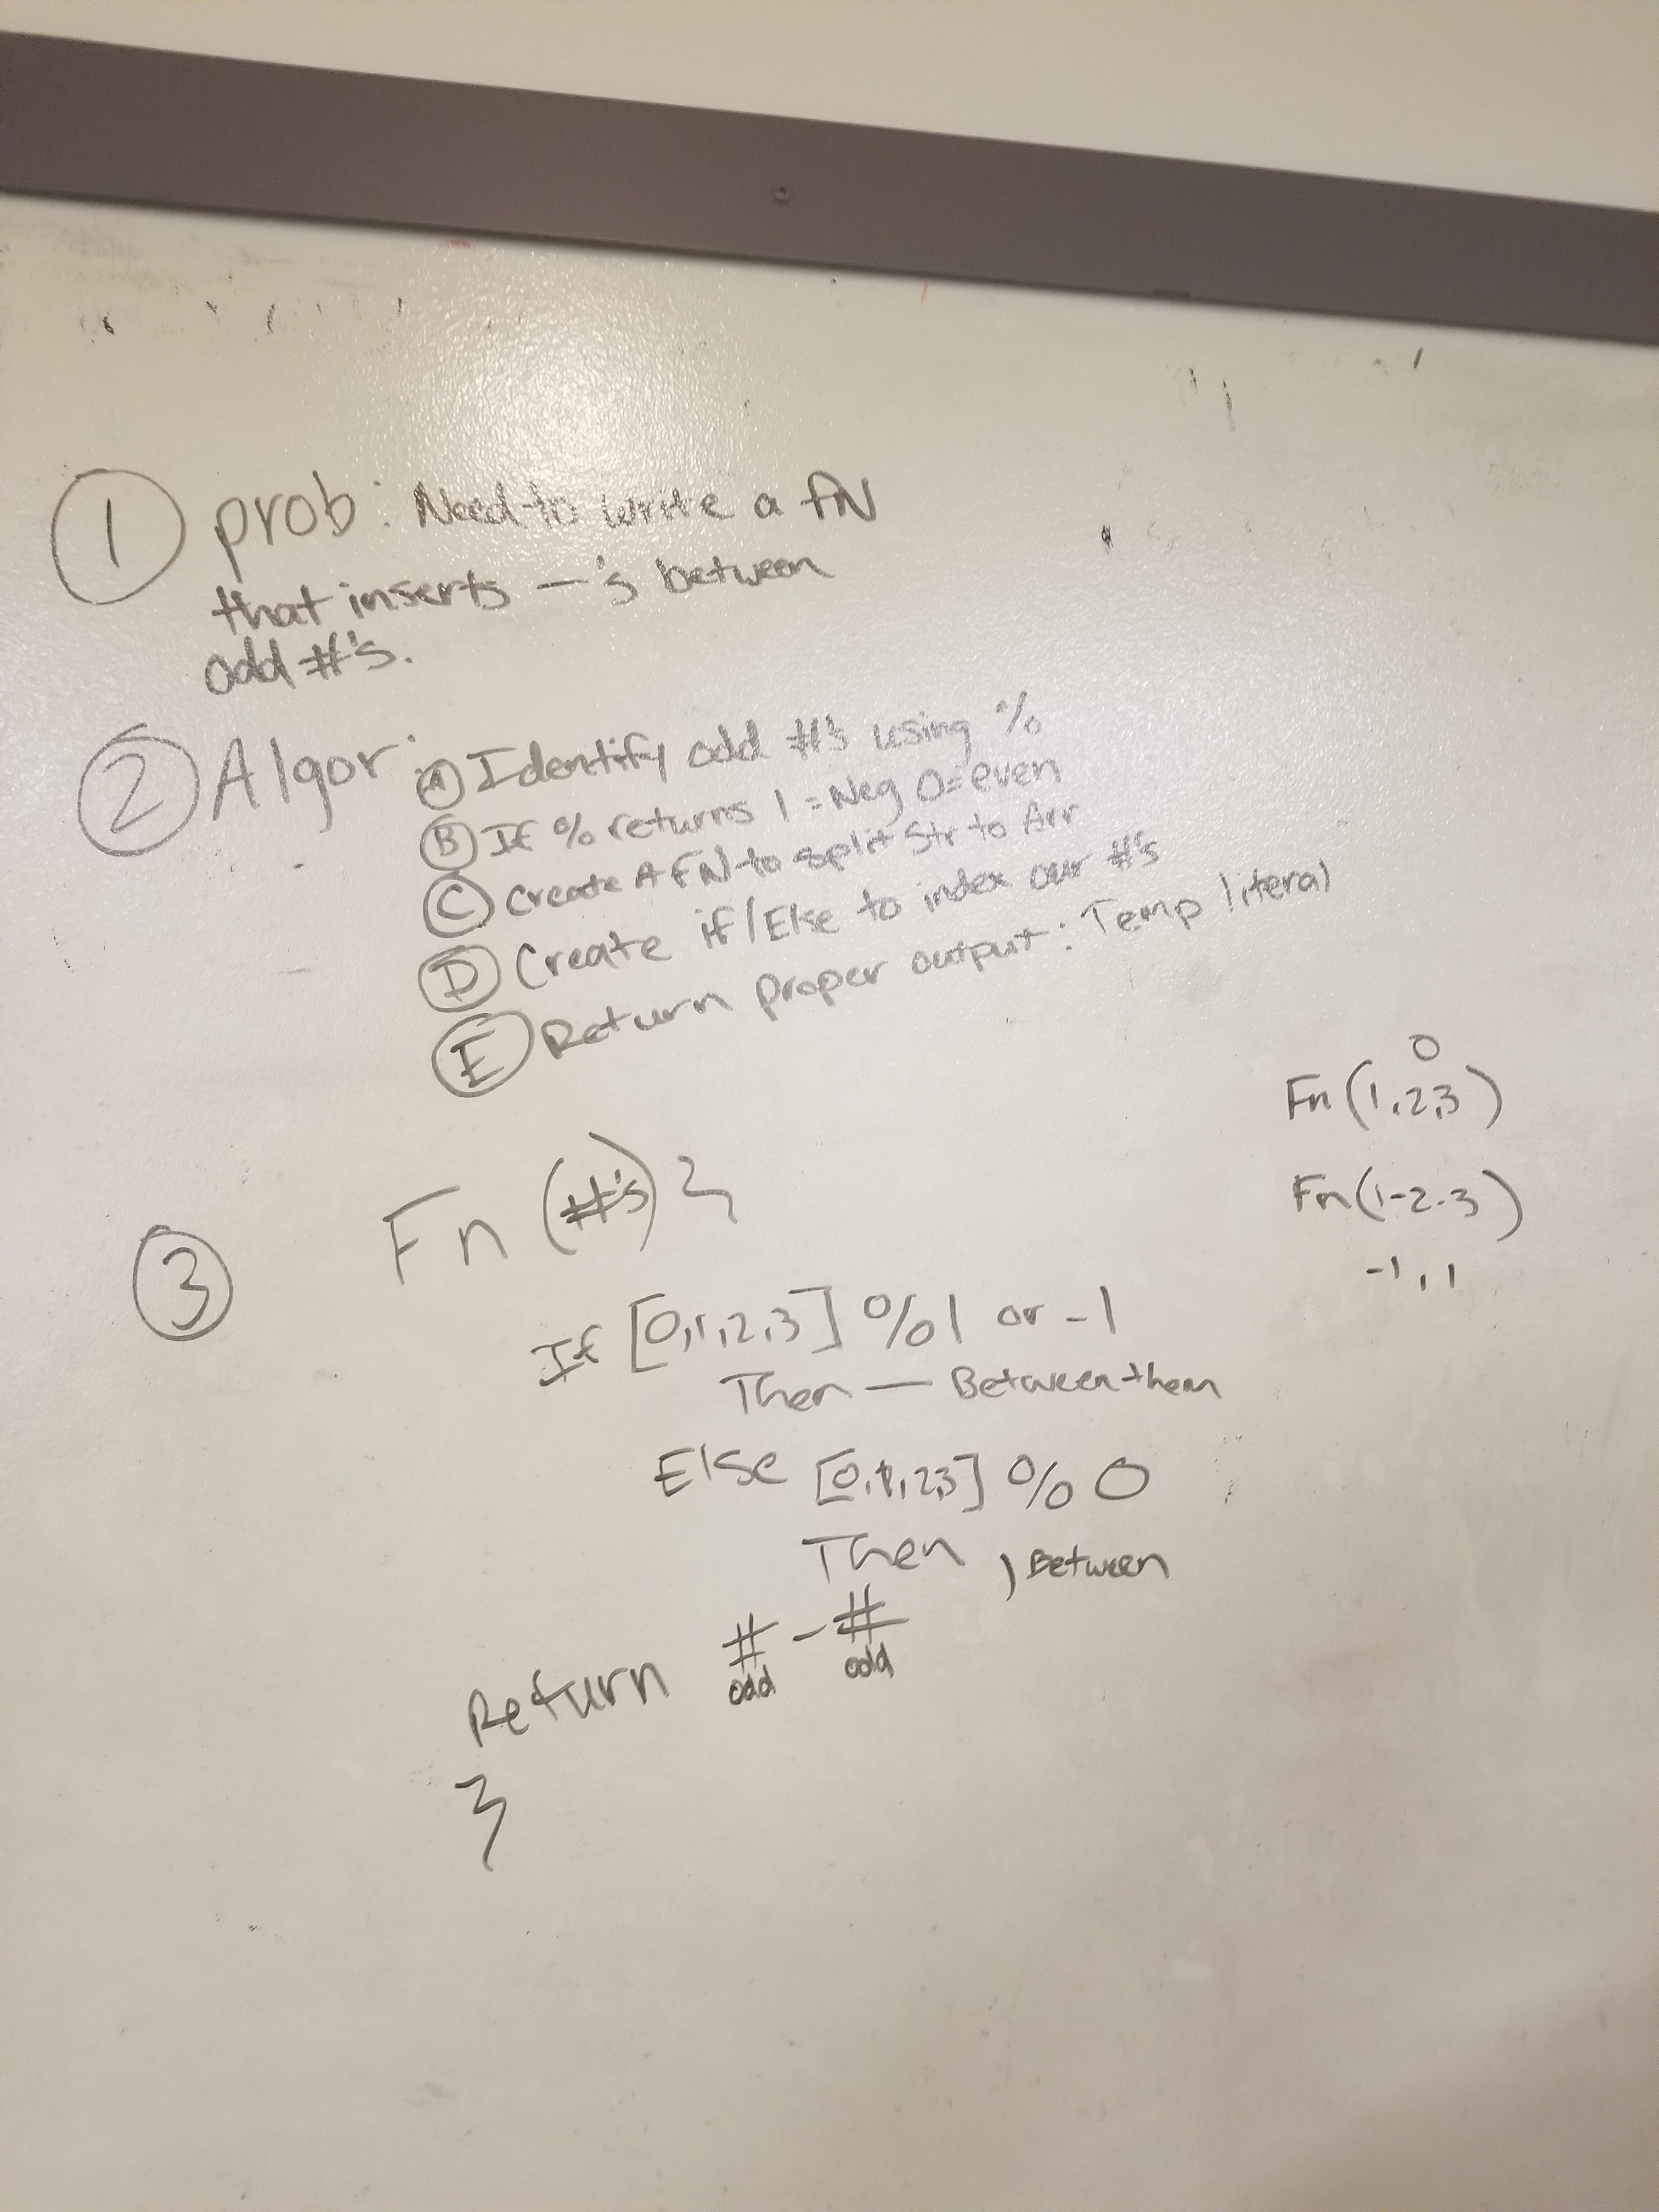 1 prob: Need to write a fN
that inserts —'s between
odd #'s.
2 Algor: A Identify odd #'s using %
B If % returns 1 = Neg 0=even
C Create A FN to split Str to Arr
D Create if/Else to index our #'s
E Return proper output: Temp literal
0
Fn (1,2,3)
Fn (1-2-3)
-1, 1
3 Fn (#'s) {
If [0,1,2,3] % 1 or -1
Then — Between them
Else [0,1,2,3] % 0
Then , Between
Return # - #
odd odd
}